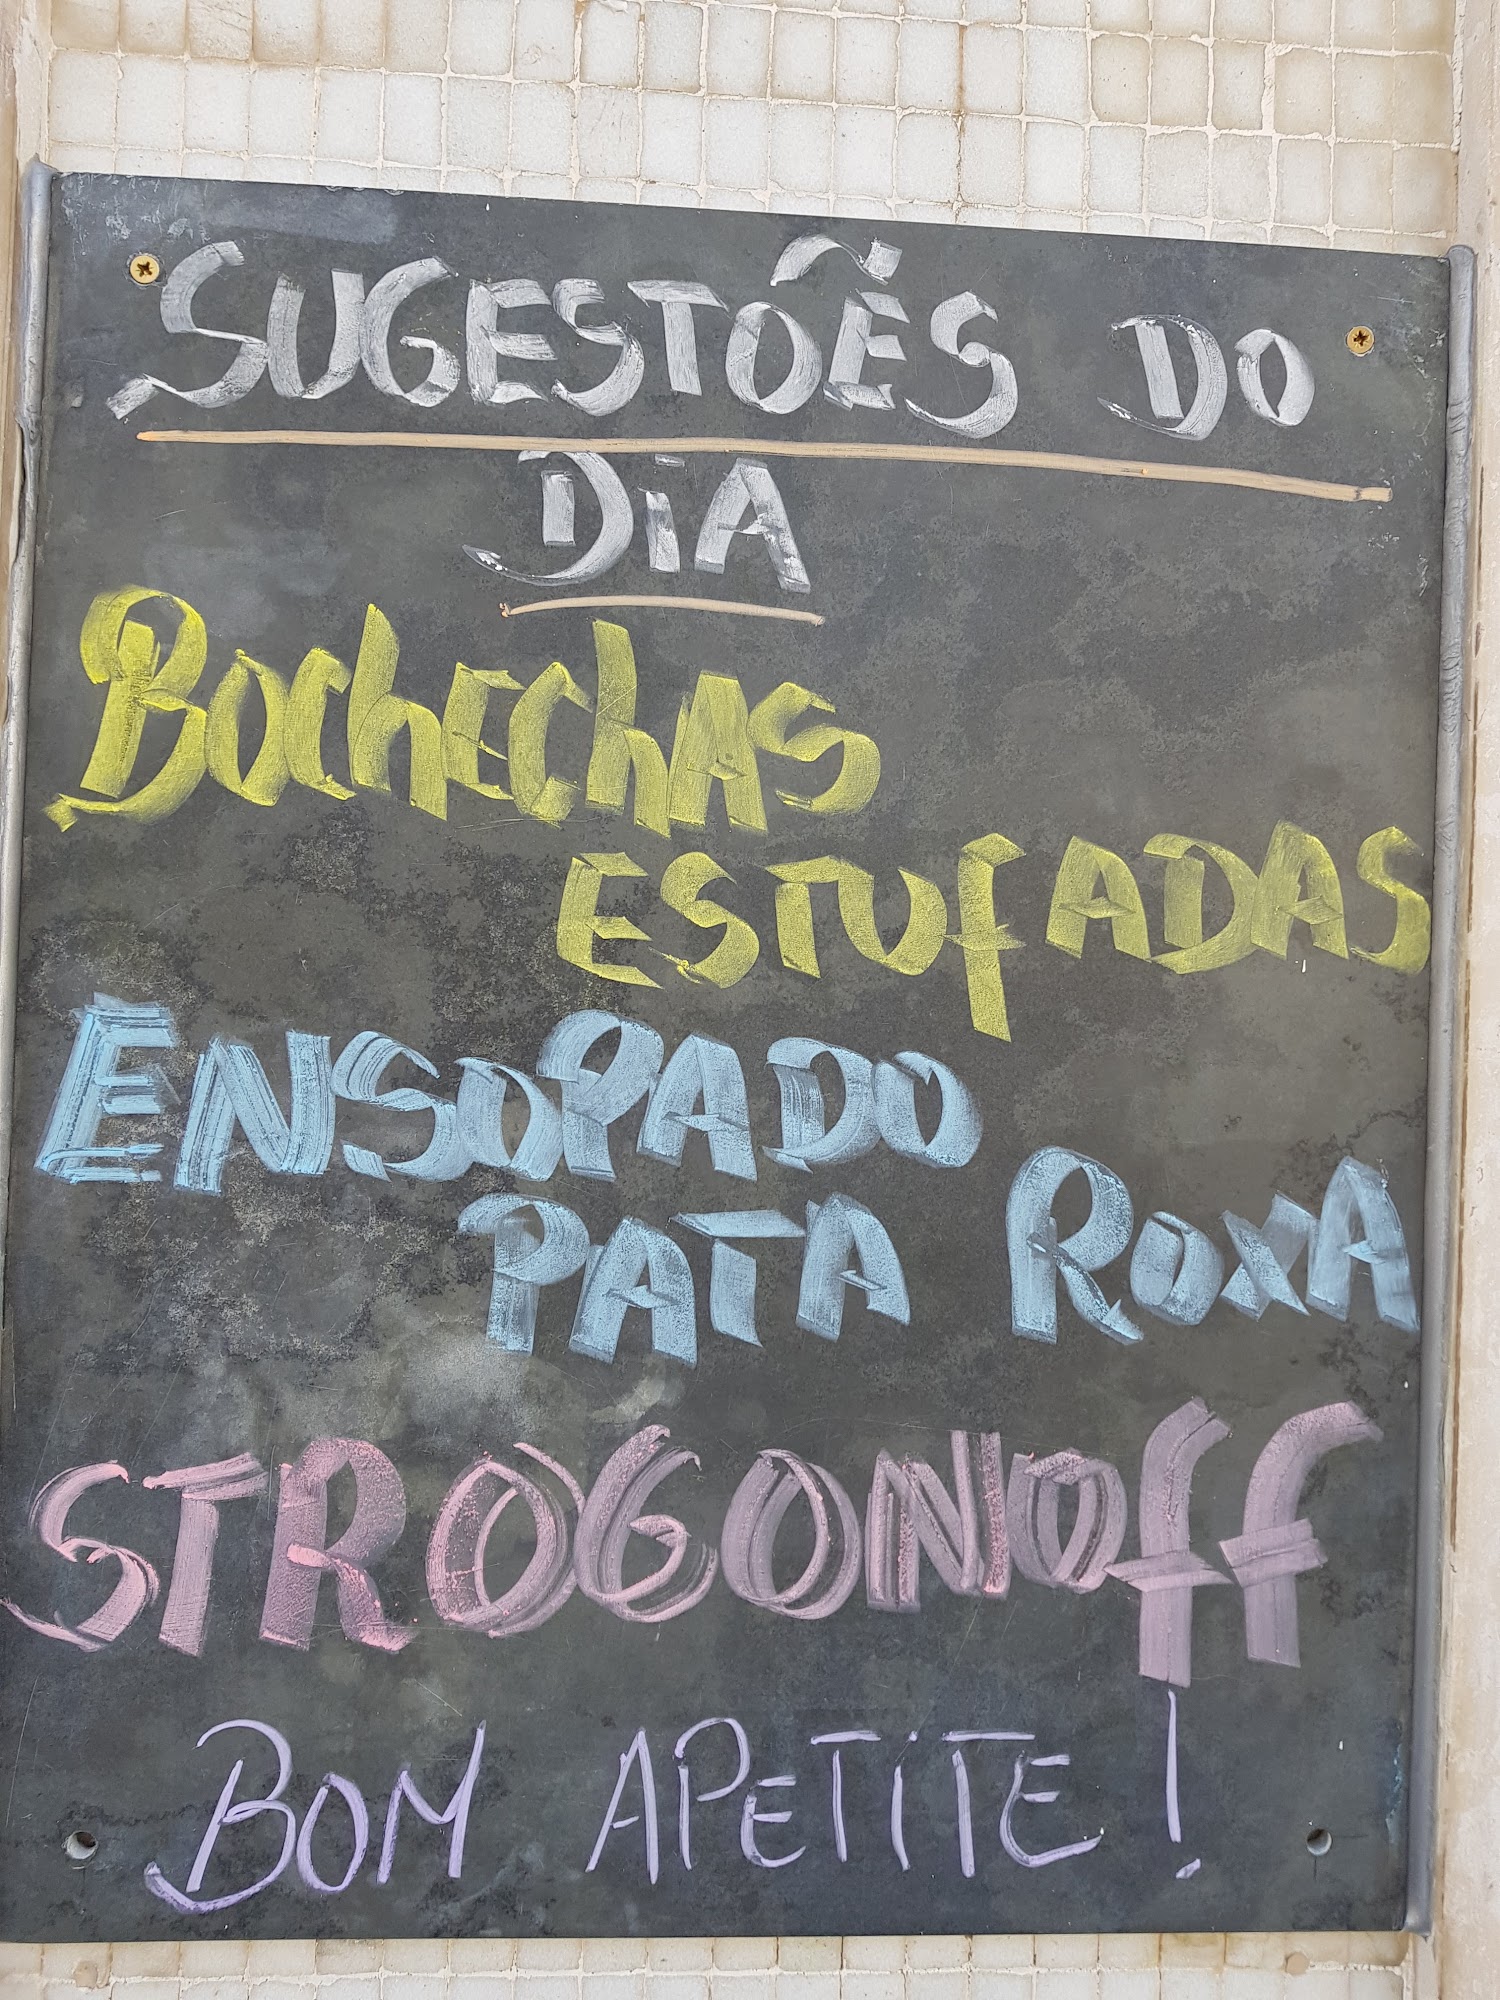 SUGESTÕES DO
DiA
BOCHECHAS
ESTUFADAS
ENSOPADO
PATA ROXA
STROGONOFF
BOM APETiTE!